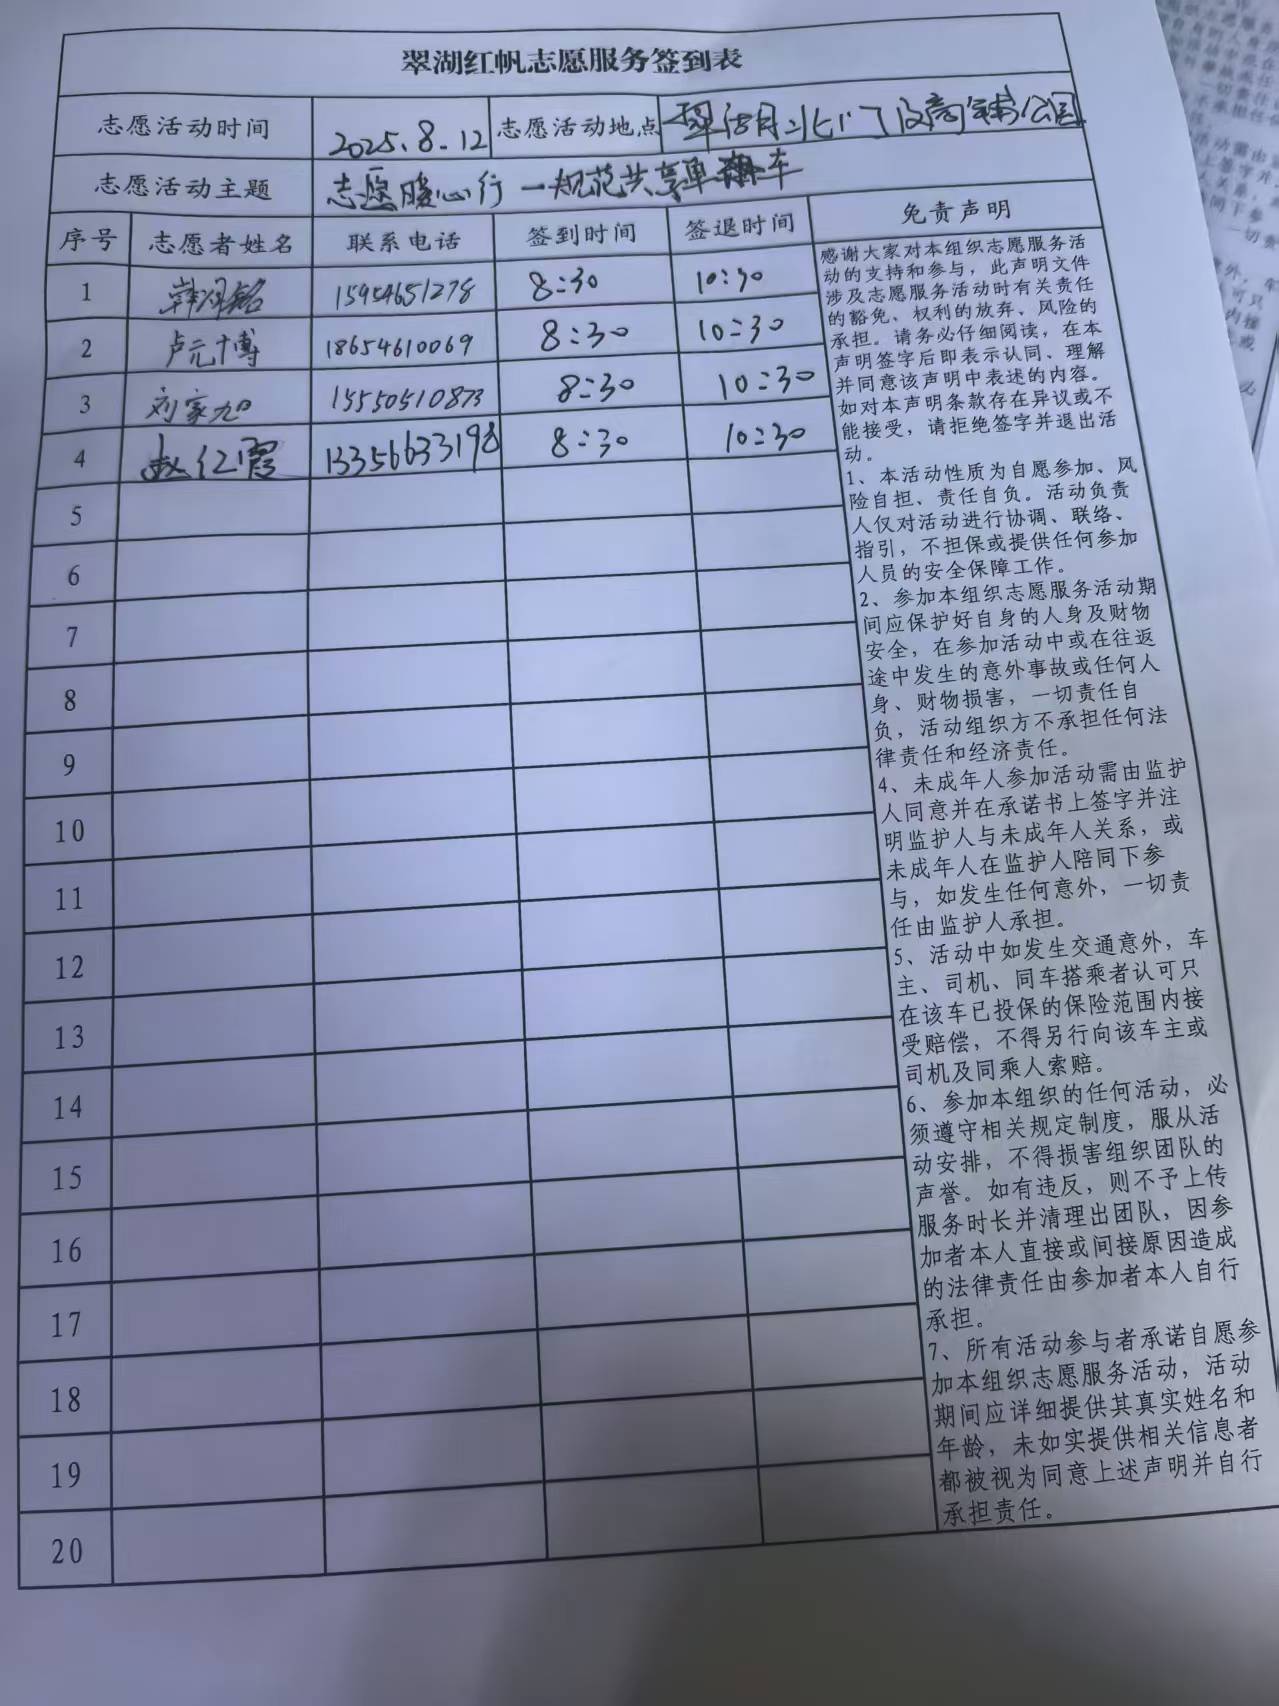 翠湖红帆志愿服务签到表
志愿活动时间 2025.8.12 志愿活动地点 翠湖北门及商铺公园
志愿活动主题 志愿暖心行一规范共享单车
序号 志愿者姓名 联系电话 签到时间 签退时间 免责声明
1 15954651278 8:30 10:30
2 卢元博 18654610069 8:30 10:30
3 刘家旭 15550510873 8:30 10:30
4 赵红霞 13356633198 8:30 10:30
5
6
7
8
9
10
11
12
13
14
15
16
17
18
19
20
感谢大家对本组织志愿服务活
动的支持和参与，此声明文件
涉及志愿服务活动时有关责任
的豁免、权利的放弃、风险的
承担。请务必仔细阅读，在本
声明签字后即表示认同、理解
并同意该声明中表述的内容。
如对本声明条款存在异议或不
能接受，请拒绝签字并退出活
动。
1、本活动性质为自愿参加、风
险自担、责任自负。活动负责
人仅对活动进行协调、联络、
指引，不担保或提供任何参加
人员的安全保障工作。
2、参加本组织志愿服务活动期
间应保护好自身的人身及财物
安全，在参加活动中或在往返
途中发生的意外事故或任何人
身、财物损害，一切责任自
负，活动组织方不承担任何法
律责任和经济责任。
4、未成年人参加活动需由监护
人同意并在承诺书上签字并注
明监护人与未成年人关系，或
未成年人在监护人陪同下参
与，如发生任何意外，一切责
任由监护人承担。
5、活动中如发生交通意外，车
主、司机、同车搭乘者认可只
在该车已投保的保险范围内接
受赔偿，不得另行向该车主或
司机及同乘人索赔。
6、参加本组织的任何活动，必
须遵守相关规定制度，服从活
动安排，不得损害组织团队的
声誉。如有违反，则不予上传
服务时长并清理出团队，因参
加者本人直接或间接原因造成
的法律责任由参加者本人自行
承担。
7、所有活动参与者承诺自愿参
加本组织志愿服务活动，活动
期间应详细提供其真实姓名和
年龄，未如实提供相关信息者
都被视为同意上述声明并自行
承担责任。